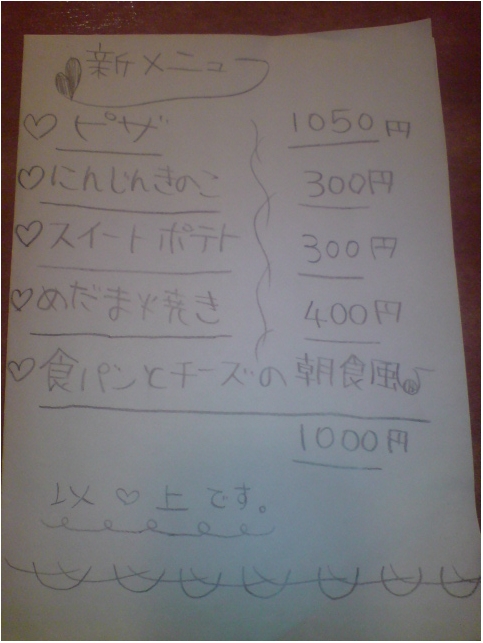 新メニュー
♡ピザ 1050円
♡にんじんきのこ 300円
♡スイートポテト 300円
♡めだま火焼き 400円
♡食パンとチーズの朝食風♪
1000円
以♡上です。